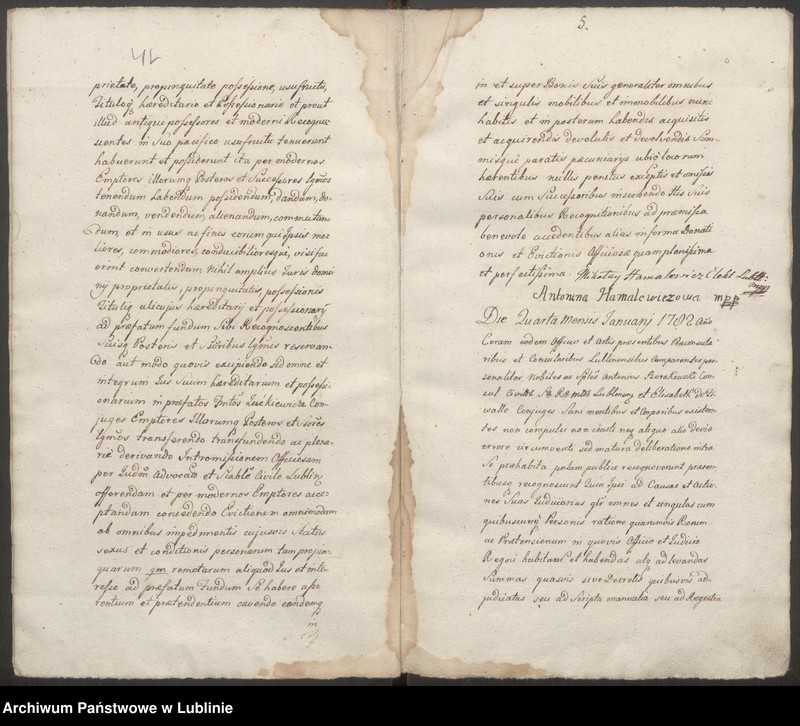 prietate, propinquitate possessione, usufructu,
Tituloq haereditario et Possessionario et prout
illud antiqui possessores et moderni Recogno-
scentes in Suo pacifico usufructu tenuerunt
habuerunt et possiderunt ita per modernos
Emptores illorumq Posteros et Successores lgtmos
tenendum habendum possidendum, dandum, do-
nandum, vendendum, alienandum, commutan-
dum, et in usus ac fines eorum qui Ipsis me-
liores, commodiores, conducibilioresque, visi fu-
erint convertendum. Nihil amplius Juris Domi-
nij proprietatis, propinquitatis, possessionis
Tituliq alicujus haereditarij et possessionarij
ad praefatum fundum Sibi Recognoscentibus
Suisq Posteris et Sccoribus lgtmis reservan-
do aut modo quovis excipiendo sed omne et
integrum Jus Suum haereditarium et possessi-
onarium in praefatos Con-
juges Emptores Illorumq Posteros et Sccores
lgtmos transferendo transfundendo ac plena-
rie derivando Intromissionem Officiosam
per Judm Advocatle et Scable Civile Lublin
offerendam et per modernos Emptores acce-
ptandam concedendo Evictionem omnimodam
ab omnibus impedimentis cujusvis Status
sexus et conditionis personarum tam propin-
quarum qm remotarum aliquod Jus et inte-
resse ad praefatum Fundum Se habere asse-
rentium et praetendentium cavendo eandemq
in
5.
in et super Bonis Suis generaliter omnibus
et singulis mobilibus et immobilibus nunc
habitis et in posterum habendis acquisitis
et acquirendis devolutis et devolvendis Sum-
misque paratis paecuniarijs ubiq locorum
habentibus nullis penitus exceptis et
Suis cum Successoribus inscribendo His Suis
personalibus Recognitionibus ad praemissa
benevole accedentibus alias in forma Donati
onis et Evictionis Officiosae quam plenissima
et perfectissima. Mikołay Hamalewicz
mpp
Antonina Hamalewiczowa mpp
Die Quarta Mensis Januarij 1782 Ano
Coram eodem Officio et Actis praesentibus Proconsula-
ribus et Consularibus Lublinensibus Comparentes per-
sonaliter Nobiles ac Antonius Con-
sul et Elisabeth de
walle Conjuges Sani mentibus et Corporibus existen-
tes non compulsi nec coacti neq aliquo alio devio
errore circumventi sed matura deliberatione intra
Se praehabita palam publice recognoverunt praesen-
tibusq recognoscunt Quia Ipsi ad Causas et Actio-
nes Suas Judiciarias glr omnes et singulas cum
quibuscunq Personis ratione quarumvis Rerum
ac Praetensionum in quovis Officio et Judicio
Regni habitas et habendas atq ad levandas
Summas quasvis sive Decretis quibusvis ad-
judicatas seu ad Scripta manualia seu ad Regestra
Archiwum Państwowe w Lublinie